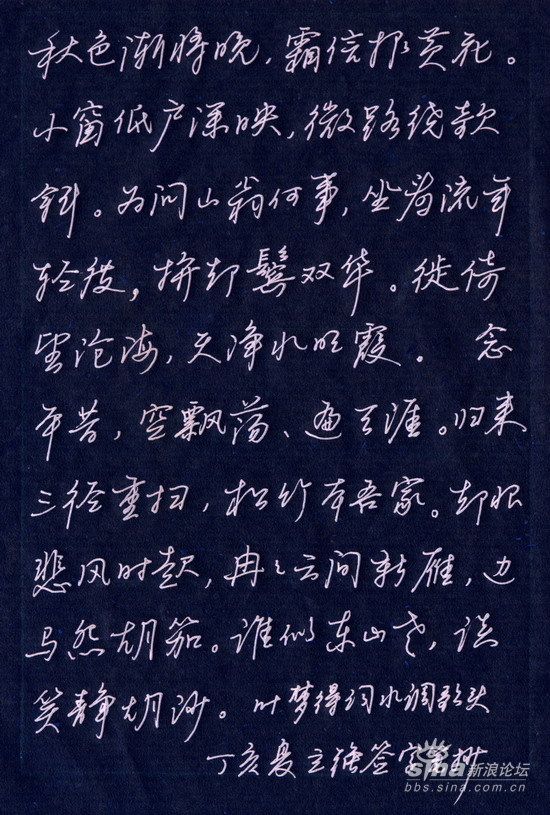 秋色渐将晚，霜信报黄花。
小窗低户深映，微路绕欹
斜。为问山翁何事，坐看流年
轻度，拚却鬓双华。徙倚
望沧海，天净水明霞。　念
平昔，空飘荡、遍天涯。归来
三径重扫，松竹本吾家。却恨
悲风时起，冉々云间新雁，边
马怨胡笳。谁似东山老，谈
笑静胡沙。叶梦得词水调歌头
丁亥夏 签字笔抄
sina 新浪论坛
bbs.sina.com.cn